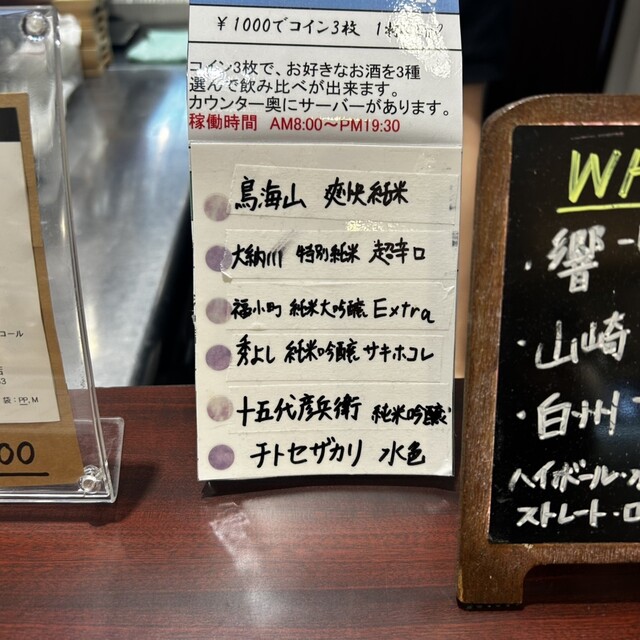 ¥1000でコイン3枚
コイン3枚で、お好きなお酒を3種
選んで飲み比べが出来ます。
カウンター奥にサーバーがあります。
稼働時間 AM8:00～PM19:30
鳥海山 爽快純米
大納川 特別純米 超辛口
福小町 純米大吟醸 Extra
秀よし 純米吟醸 サキホコレ
十五代彦兵衛 純米吟醸
チトセザカリ 水色
コール
店
袋:PP,M
00
WH
・響
・山崎
・白州
ハイボール・水
ストレート・ロ